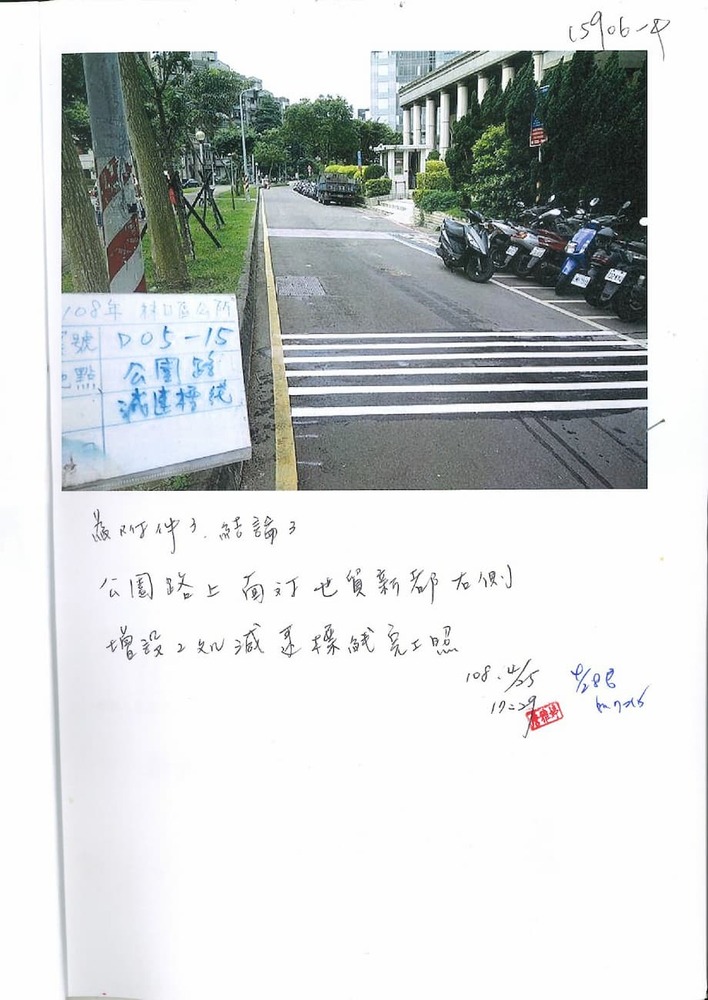 15906-4
108年 林口區公所
號 D05-15
點 公園路
減速標線
附件3. 結論3
公園路上面對世貿新都右側
增設2処減速標線完工照
108. 4/25
17:29